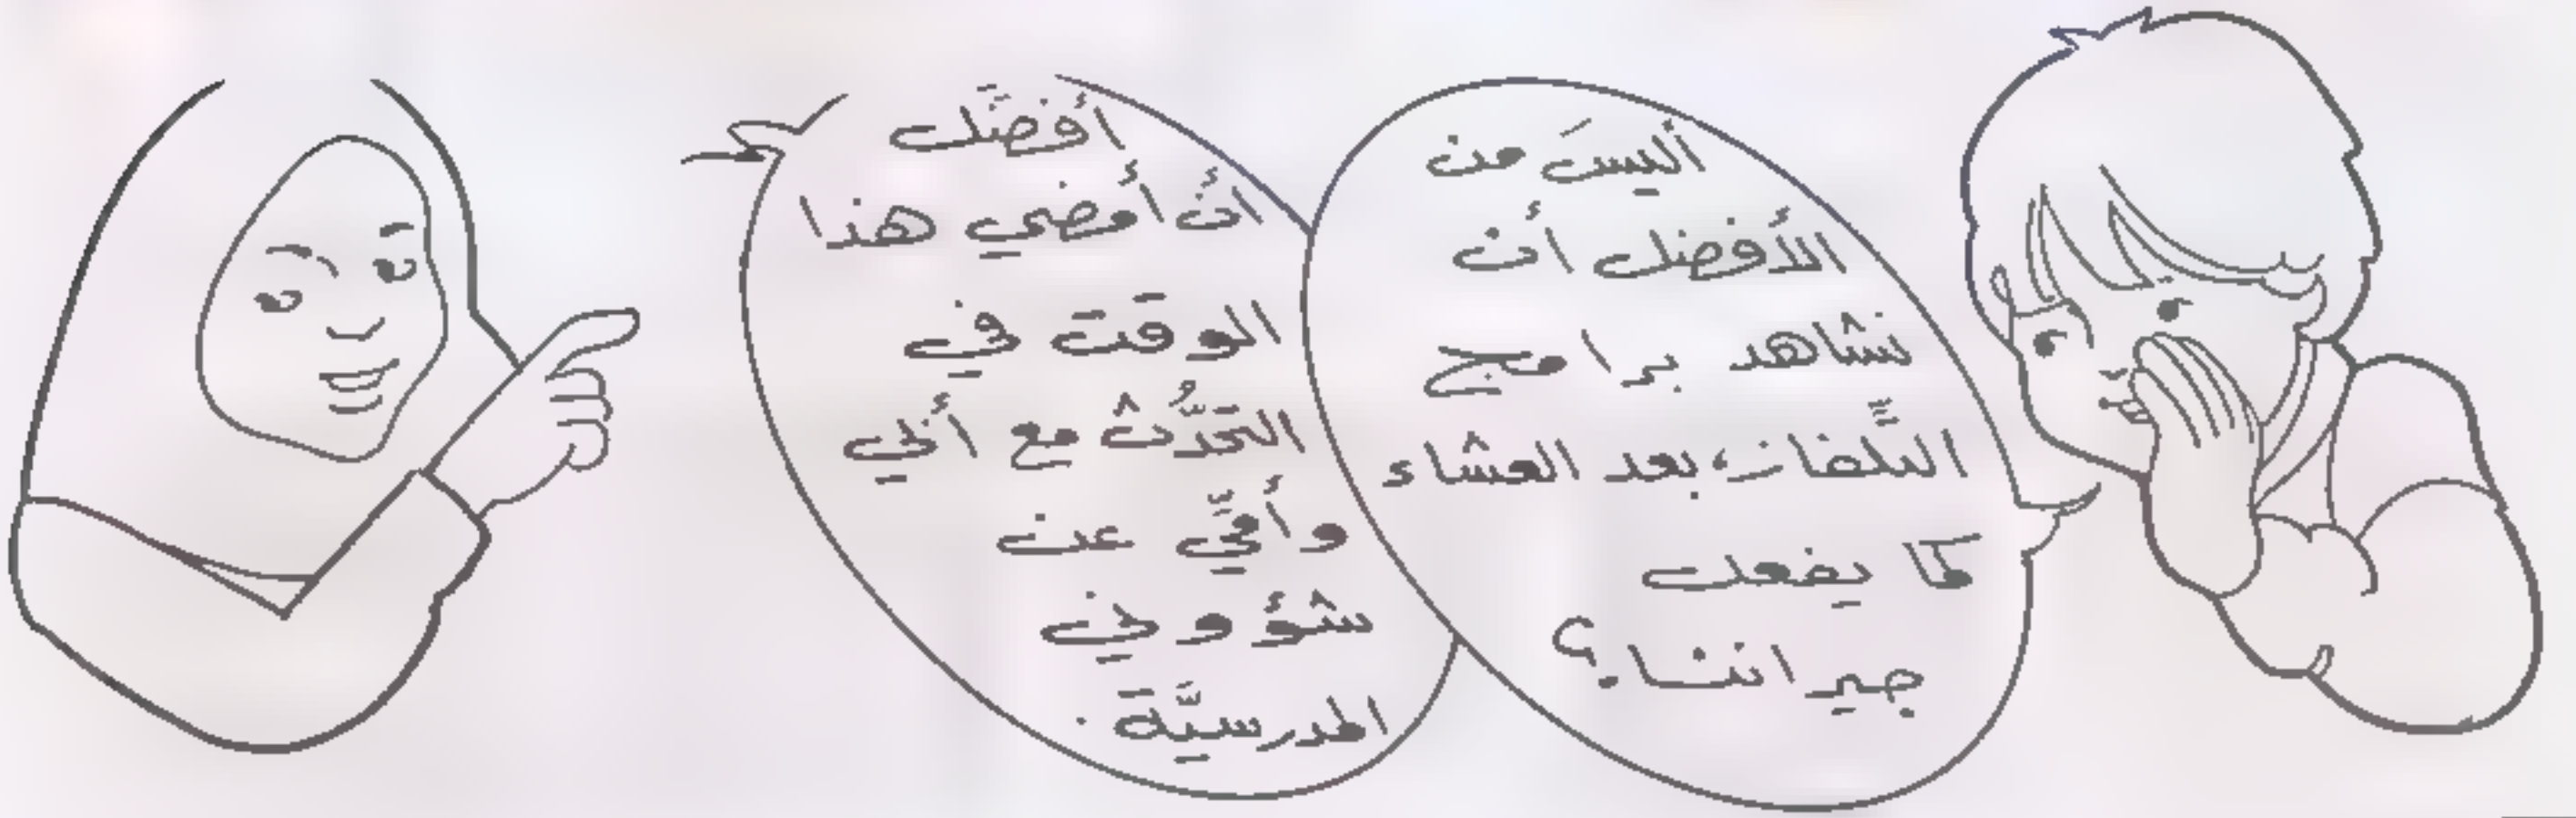 أليسَ من
الأفضل أن
نشاهد برامج
التِّلفاز، بعد العشاء
كما يفعل
جيراننا؟
أفضّل
أنْ أمضي هذا
الوقت في
التحدُّث مع أبي
وأمّي عن
شؤوني
المدرسيَّة.